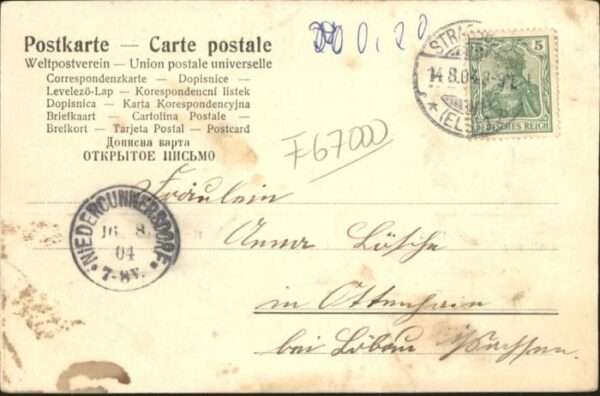 Postkarte — Carte postale
Weltpostverein — Union postale universelle
Correspondenzkarte — Dopisnice —
Levelező-Lap — Korespondencní listek
Dopisnica — Karta Korespondencyjna
Briefkaart — Cartolina Postale —
Brefkort — Tarjeta Postal — Postcard
Дописна карта
ОТКРЫТОЕ ПІСЬМО
0,20
14.8.04
(ELS
5
DEUTSCHES REICH
F67000
NIEDERCUNNERSDORF
16 8.
04
7-8V.
Fräulein
Anna Lösche
in Ottenhain
bei Löbau i/Sachsen.